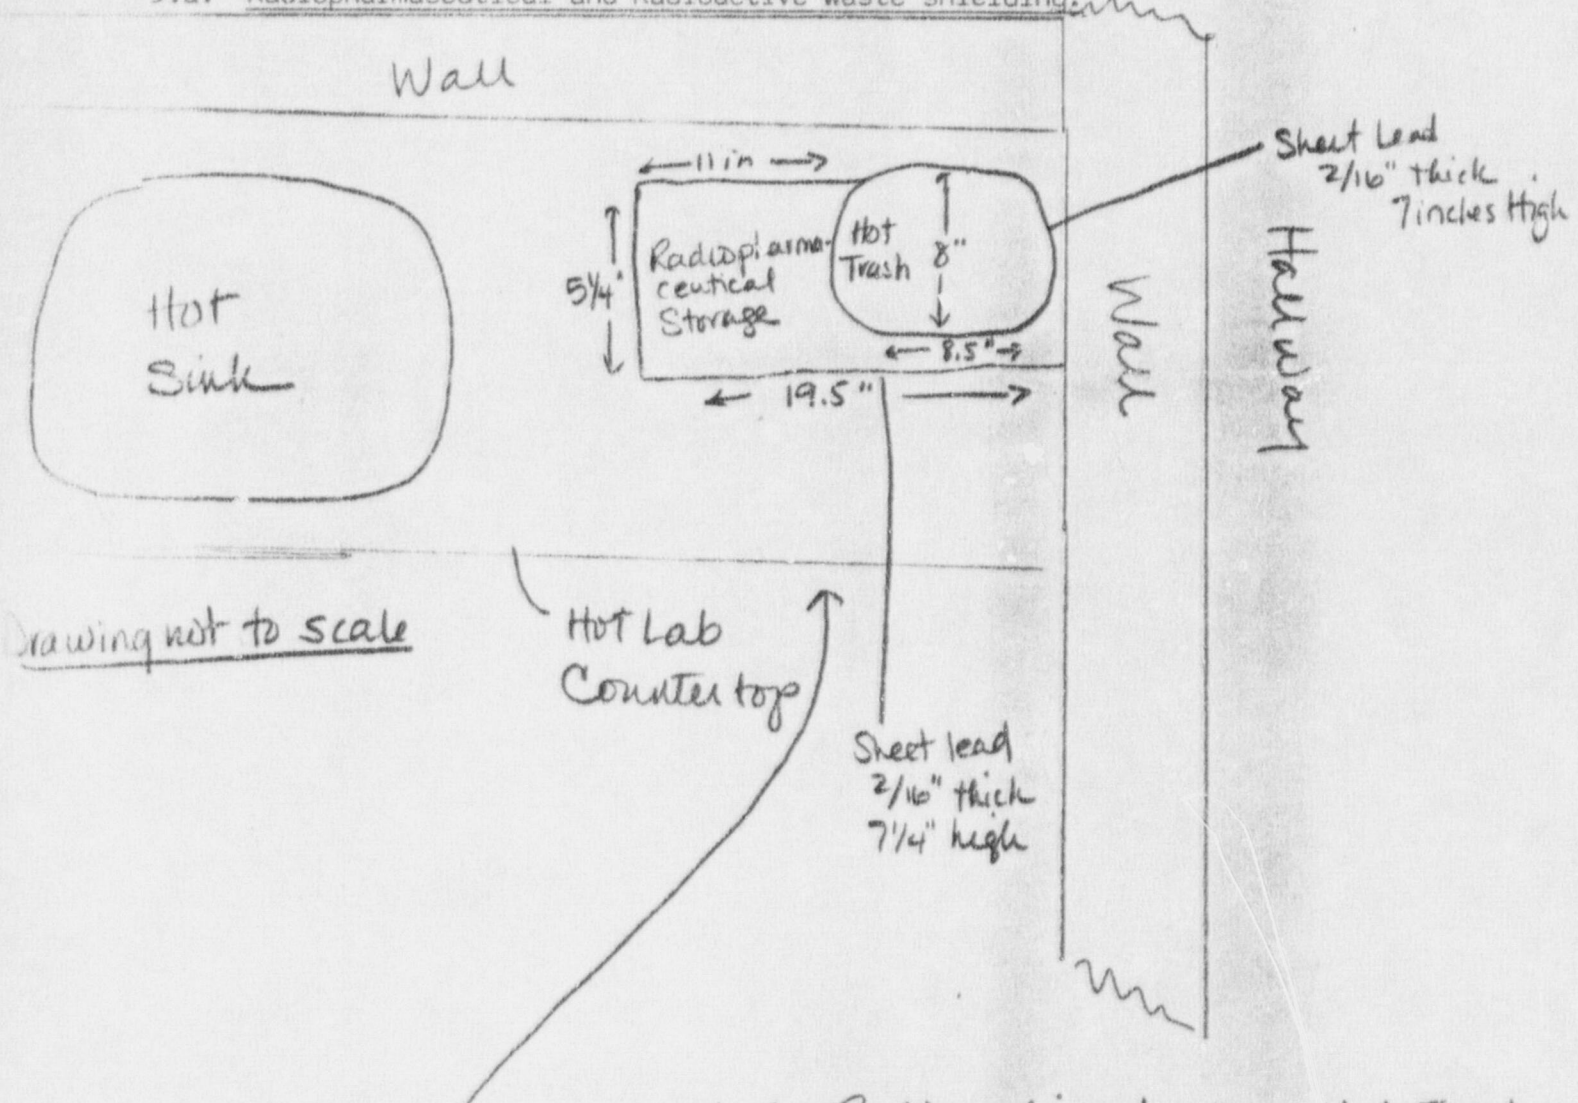 Radiopharmaceutical and Radioactive Waste Shielding:
Wall
Sheet Lead
2/16" thick
7 inches High
11 in
Hot
Trash
8"
Radiopharma-
ceutical
Storage
5 1/4"
8.5"
19.5"
Hot
Sink
Wall
Hallway
Drawing not to scale
Hot Lab
Counter top
Sheet lead
2/16" thick
7 1/4" high